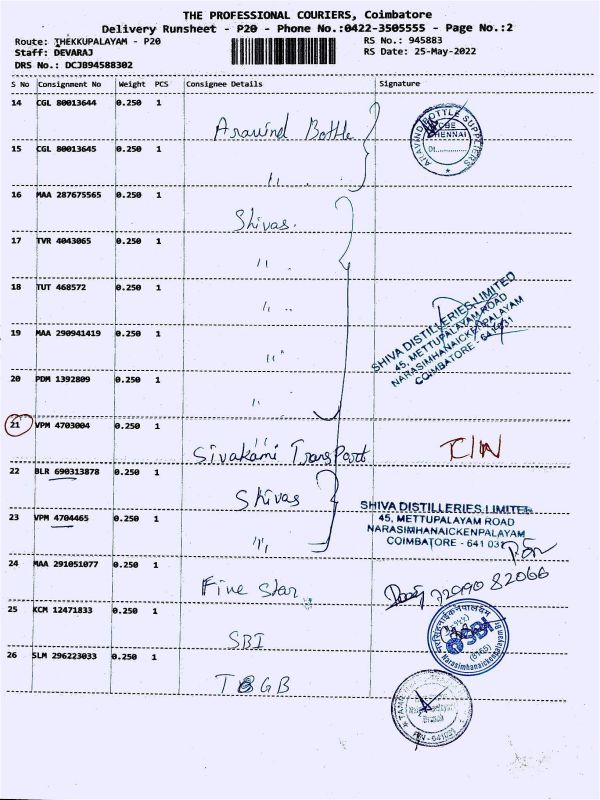 THE PROFESSIONAL COURIERS, Coimbatore
Delivery Runsheet - P20 - Phone No.:0422-3505555 - Page No.:2
Route: THEKKUPALAYAM - P20 RS No.: 945883
Staff: DEVARAJ RS Date: 25-May-2022
DRS No.: DCJB94588302
S No Consignment No Weight PCS Consignee Details Signature
14 CGL 80013644 0.250 1 Aravind Bottle
ARAVIND BOTTLE SUPPLIERS
CHENNAI
Dt...............
15 CGL 80013645 0.250 1 ,, ,,
16 MAA 287675565 0.250 1 Shivas.
17 TVR 4043065 0.250 1 ,, ,,
18 TUT 468572 0.250 1 ,, ,,
SHIVA DISTILLERIES LIMITED
45, METTUPALAYAM ROAD
NARASIMHANAICKENPALAYAM
COIMBATORE - 641 031
19 MAA 290941419 0.250 1 ,, ,,
20 PDM 1392809 0.250 1 ,, ,,
21 VPM 4703004 0.250 1 ,, Sivakami Transport
22 BLR 690313878 0.250 1 Shivas
23 VPM 4704465 0.250 1 ,,
SHIVA DISTILLERIES LIMITED
45, METTUPALAYAM ROAD
NARASIMHANAICKENPALAYAM
COIMBATORE - 641 031
24 MAA 291051077 0.250 1 Five Star 72090 82066
25 KCM 12471833 0.250 1 SBI
SBI
26 SLM 296223033 0.250 1 TBGB